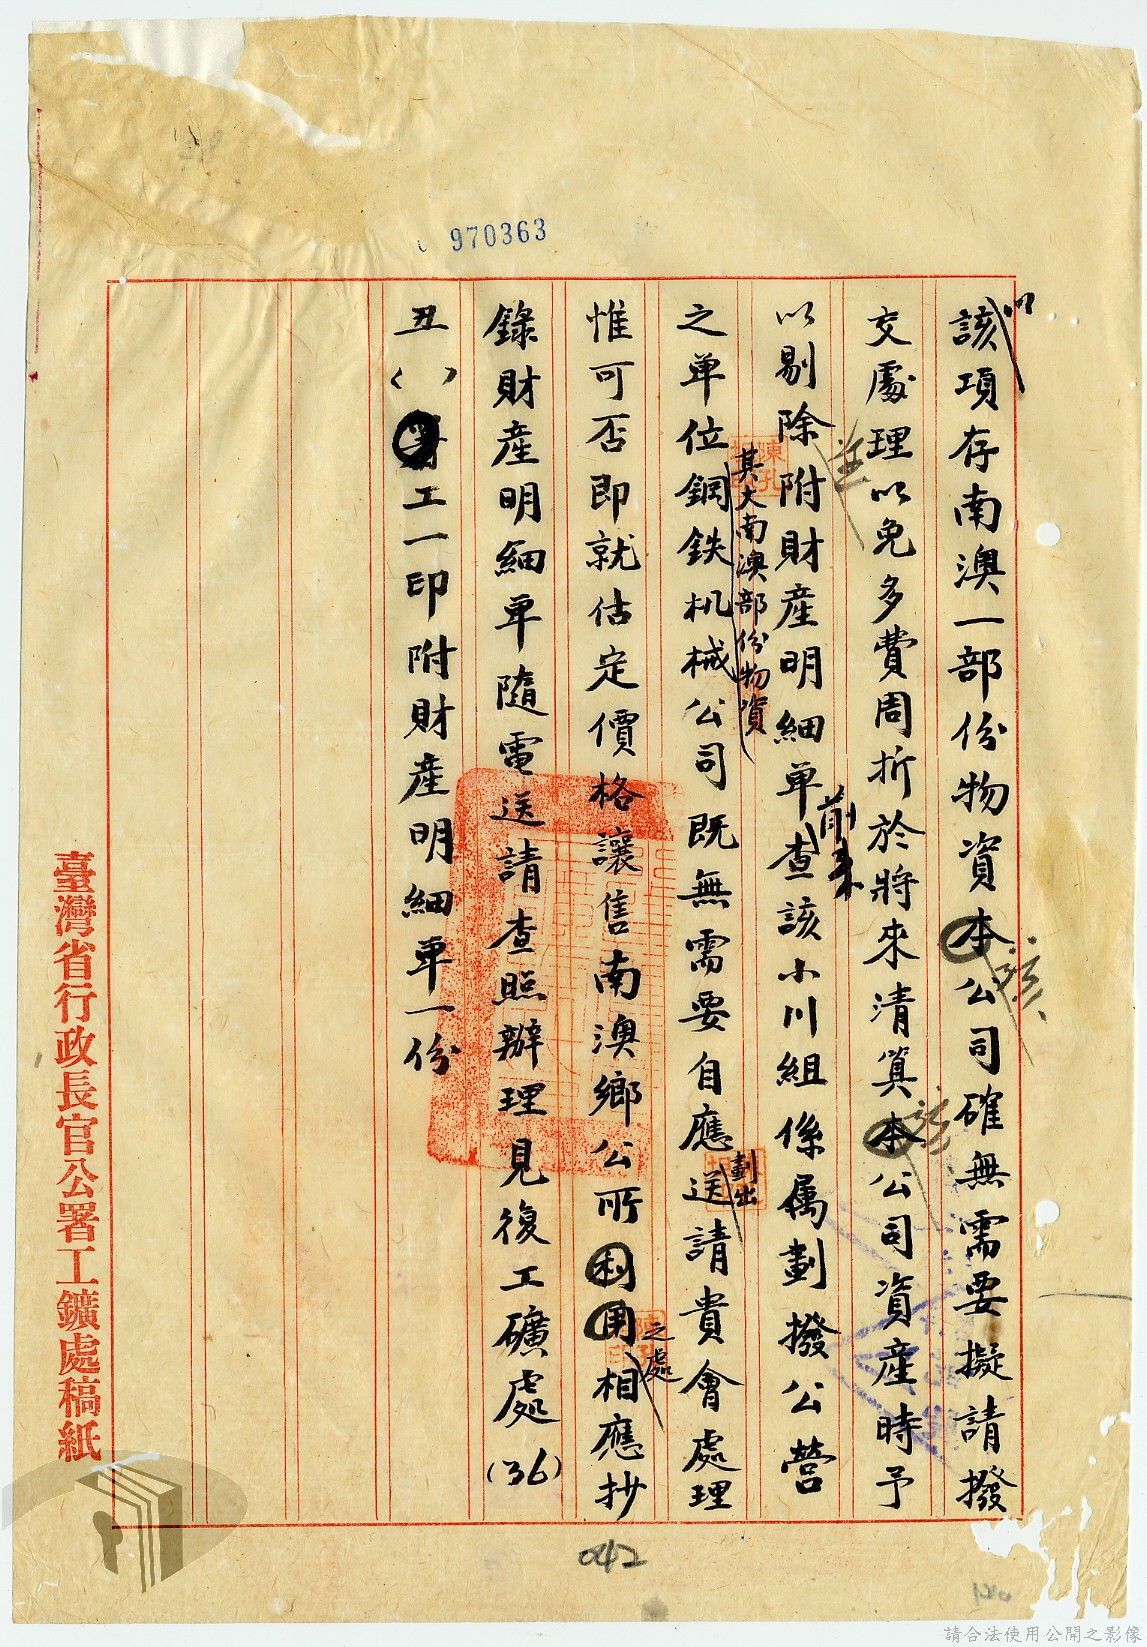 970363
以
該項存南澳一部份物資本公司確無需要擬請撥
該
交處理以免多費周折於將來清算本公司資產時予
該
以剔除附財產明細单查該小川組係属劃撥公營
前来
之单位鋼鉄机械公司既無需要自應送請貴會處理
其大南澳部份物資
劃出
惟可否即就估定價格讓售南澳鄉公所利用相應抄
之處
錄財產明細单隨電送請查照辦理見復工礦處(36)
丑( )工一印附財產明細单一份
臺灣省行政長官公署工鑛處稿紙
042
120
請合法使用公開之影像